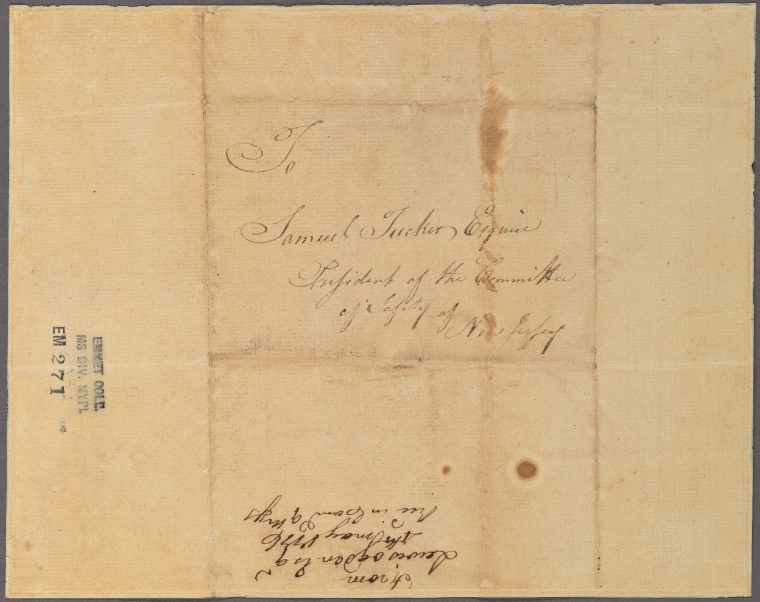 To
Samuel Tucker, Esquire
President of the Committee
of Safety of
New Jersey
From
Lewis Ogden Esqr
may 1776
EMMET COLL.
MS DIV. NYPL
EM 271